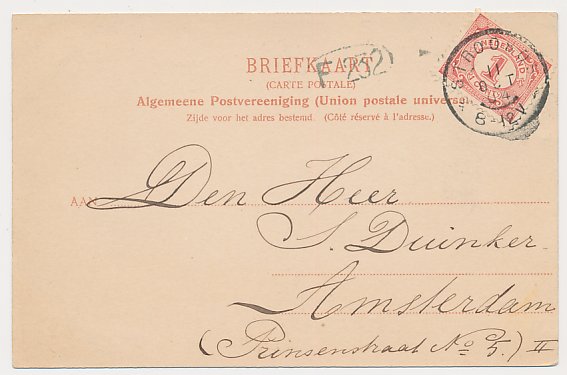 BRIEFKAART
F 252
(CARTE POSTALE)
Algemeene Postvereeniging (Union postale univers
Zijde voor het adres bestemd. (Côté réservé à l'adresse.)
NEDERLAND
1
8-12V
AAN Den Heer
S. Duinker
Amsterdam
(Prinsenstraat No 5.) II